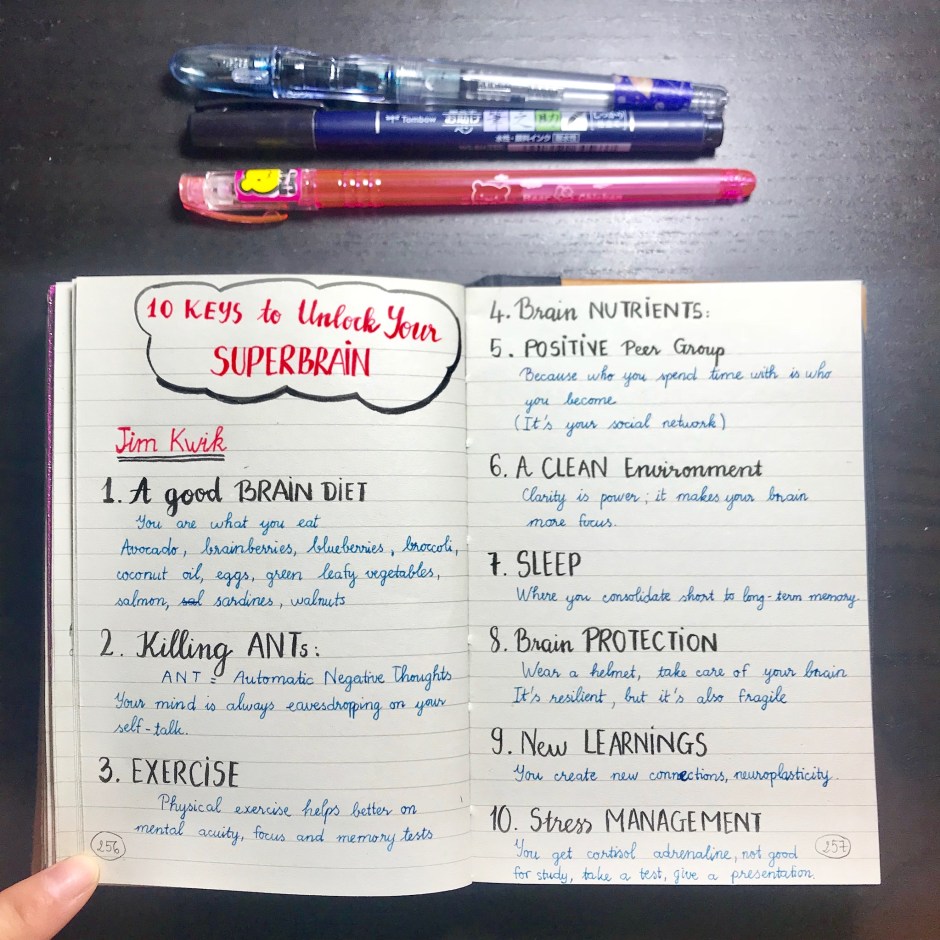 Tombow
水性・顔料インク
10 KEYS to Unlock Your
SUPERBRAIN
Jim Kwik
1. A good BRAIN DIET
You are what you eat
Avocado, brainberries, blueberries, broccoli,
coconut oil, eggs, green leafy vegetables,
salmon, sal sardines, walnuts
2. Killing ANTs:
ANT = Automatic Negative Thoughts
Your mind is always eavesdropping on your
self-talk.
3. EXERCISE
Physical exercise helps better on
mental acuity, focus and memory tests
256
4. Brain NUTRIENTS:
5. POSITIVE Peer Group
Because who you spend time with is who
you become
(It's your social network)
6. A CLEAN Environment
Clarity is power; it makes your brain
more focus.
7. SLEEP
Where you consolidate short to long-term memory.
8. Brain PROTECTION
Wear a helmet, take care of your brain
It's resilient, but it's also fragile
9. New LEARNINGS
You create new connections, neuroplasticity.
10. Stress MANAGEMENT
You get cortisol adrenaline, not good
for study, take a test, give a presentation.
257